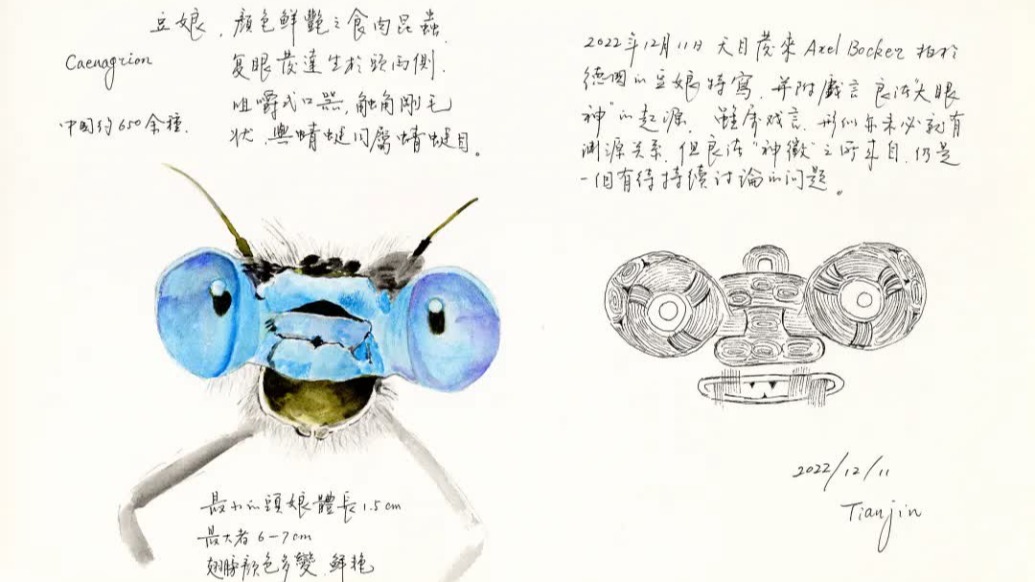 豆娘，顏色鮮艷之食肉昆蟲.
Caenagrion
复眼發達生於頭兩側.
咀嚼式口器,觸角剛毛
中国約650余種.
狀.與蜻蜓同屬蜻蜓目。
2022年12月11日 天目發來 Axel Bocker 拍於
德國的豆娘特寫.并附戲言 良渚"大眼
神"的起源. 雖屬戏言.形似亦未必就有
渊源关系.但良渚"神徽"之所來自.仍是
一個有待持續讨論的问题。
2022/12/11
Tianjin
最小的頭娘體長1.5cm
最大者6-7cm
翅膀顏色多變.鮮艳